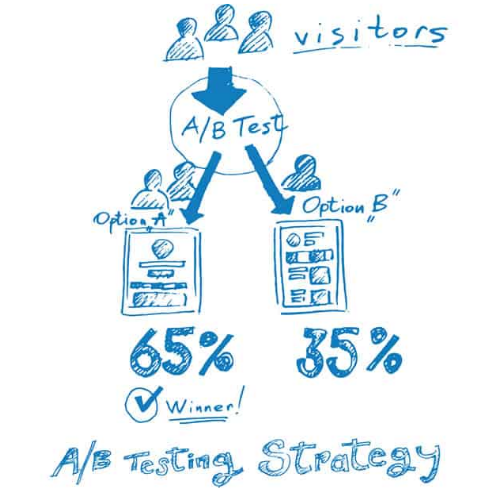 visitors
A/B Test
Option "A"
Option "B"
65% 35%
Winner!
A/B Testing Strategy